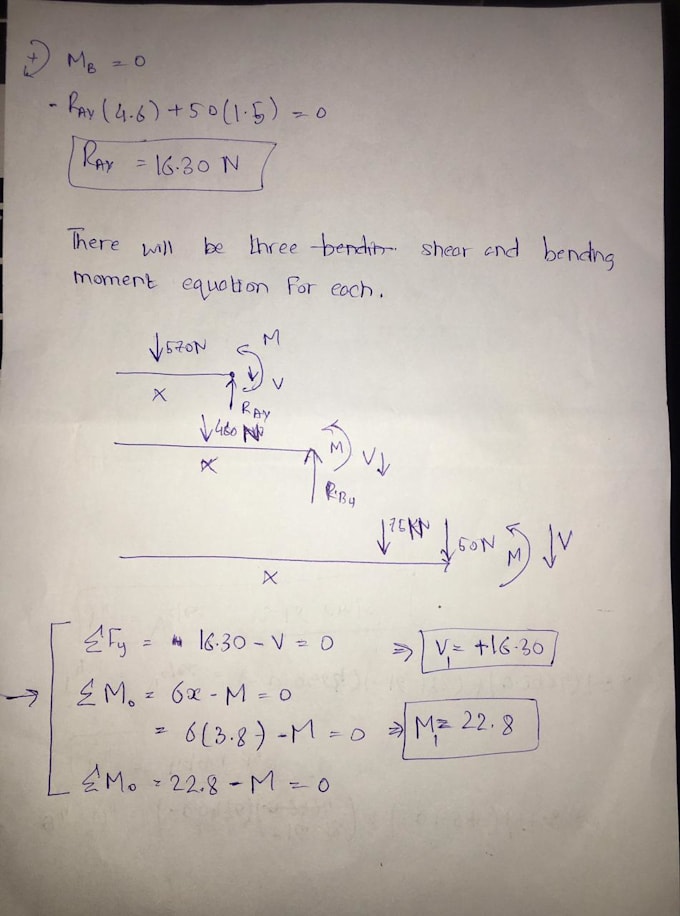 + M_B = 0
- R_AY (4.6) + 50(1.5) = 0
R_AY = 16.30 N
There will be three shear and bending
moment equation for each.
↓570N M
x V
R_AY
↓480 N
x M V↓
R_By
↓75KN ↓50N M ↓V
x
ΣFy = 16.30 - V = 0 ⇒ V₁ = +16.30
→ ΣM₀ = 6x - M = 0
= 6(3.8) - M = 0 ⇒ M₁ = 22.8
ΣM₀ = 22.8 - M = 0